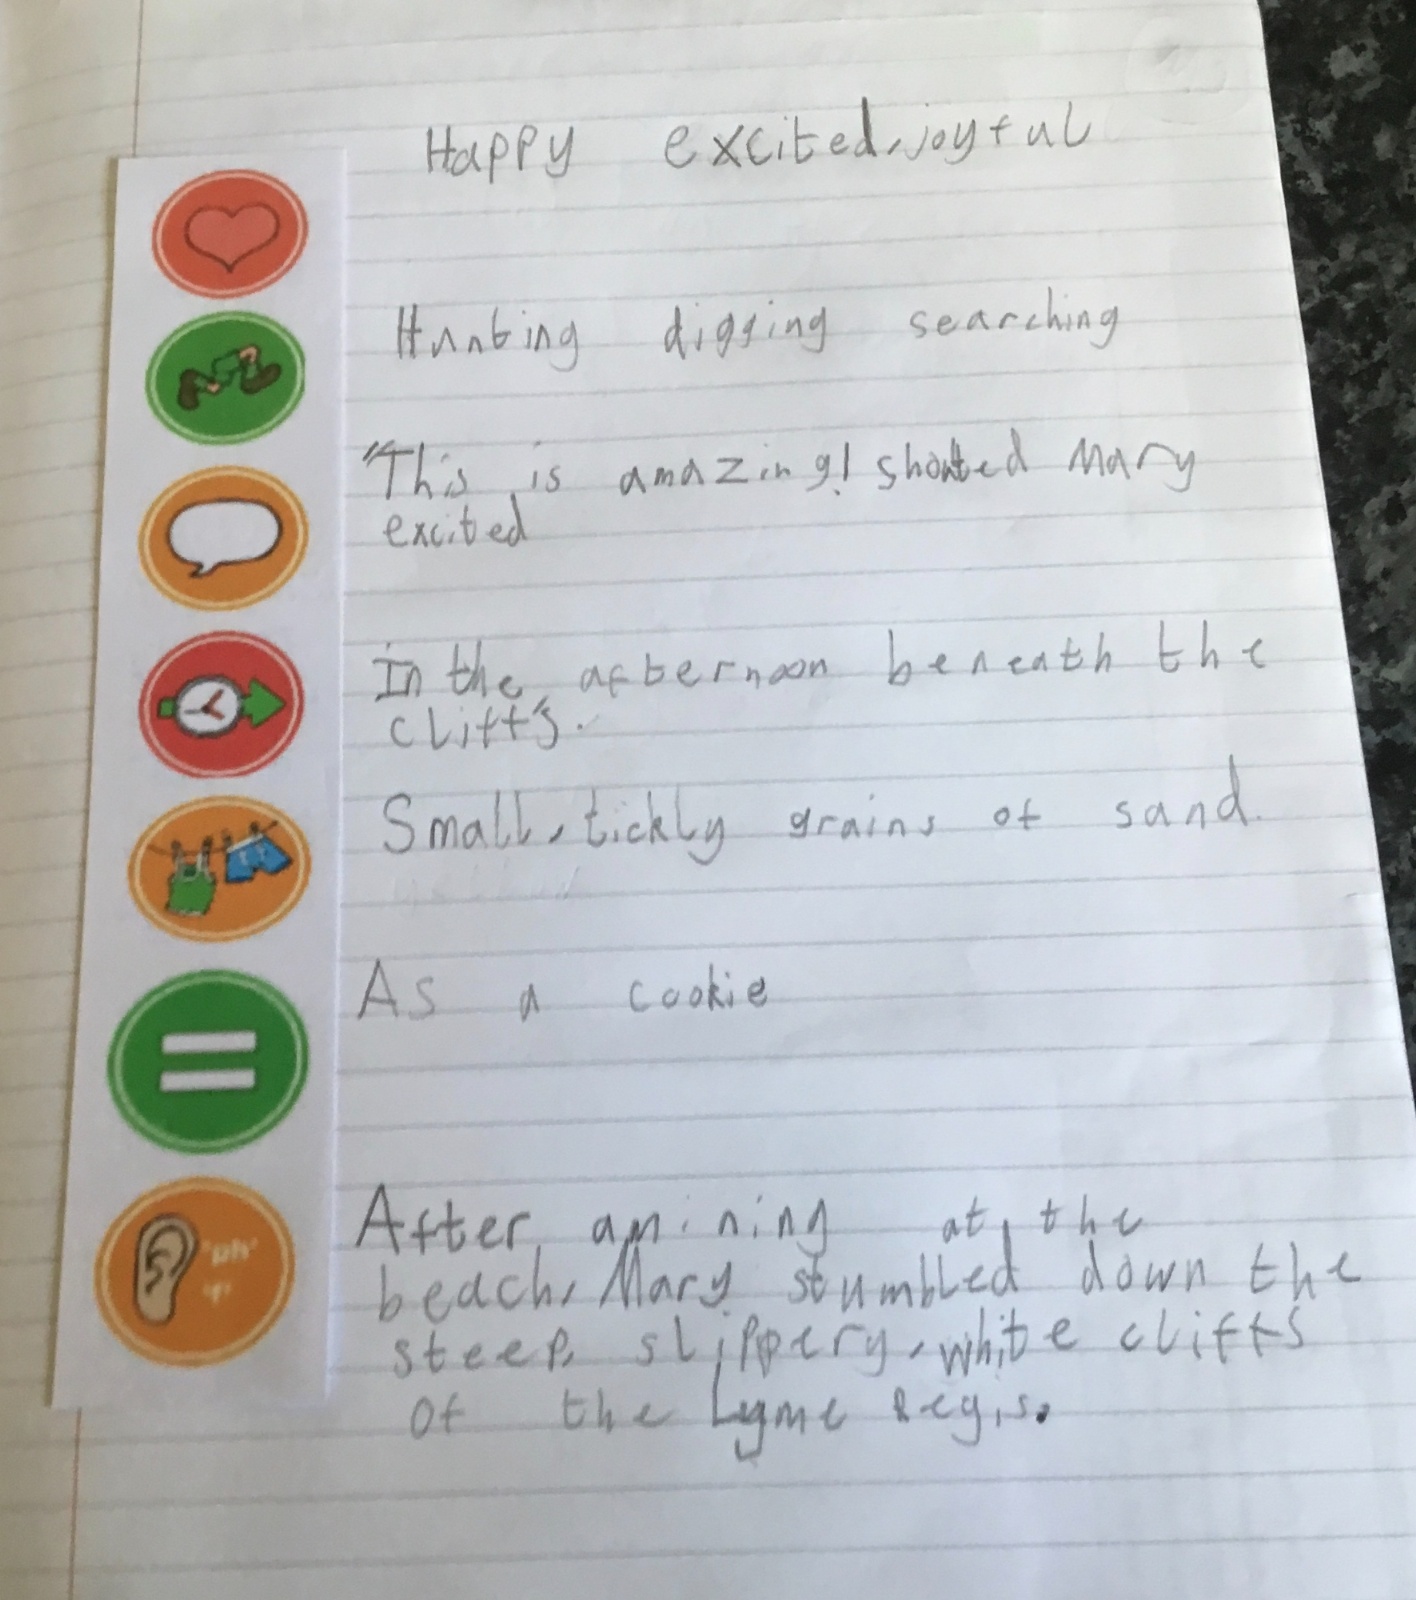 Happy excited, joyful
Hunting digging searching
"This is amazing! shouted Mary
excited
In the, afternoon beneath the
cliffs.
Small, tickly grains of sand.
As a cookie
After, at, the
beach, Mary stumbled down the
steep, slippery, white cliffs
of the Lyme Regis.